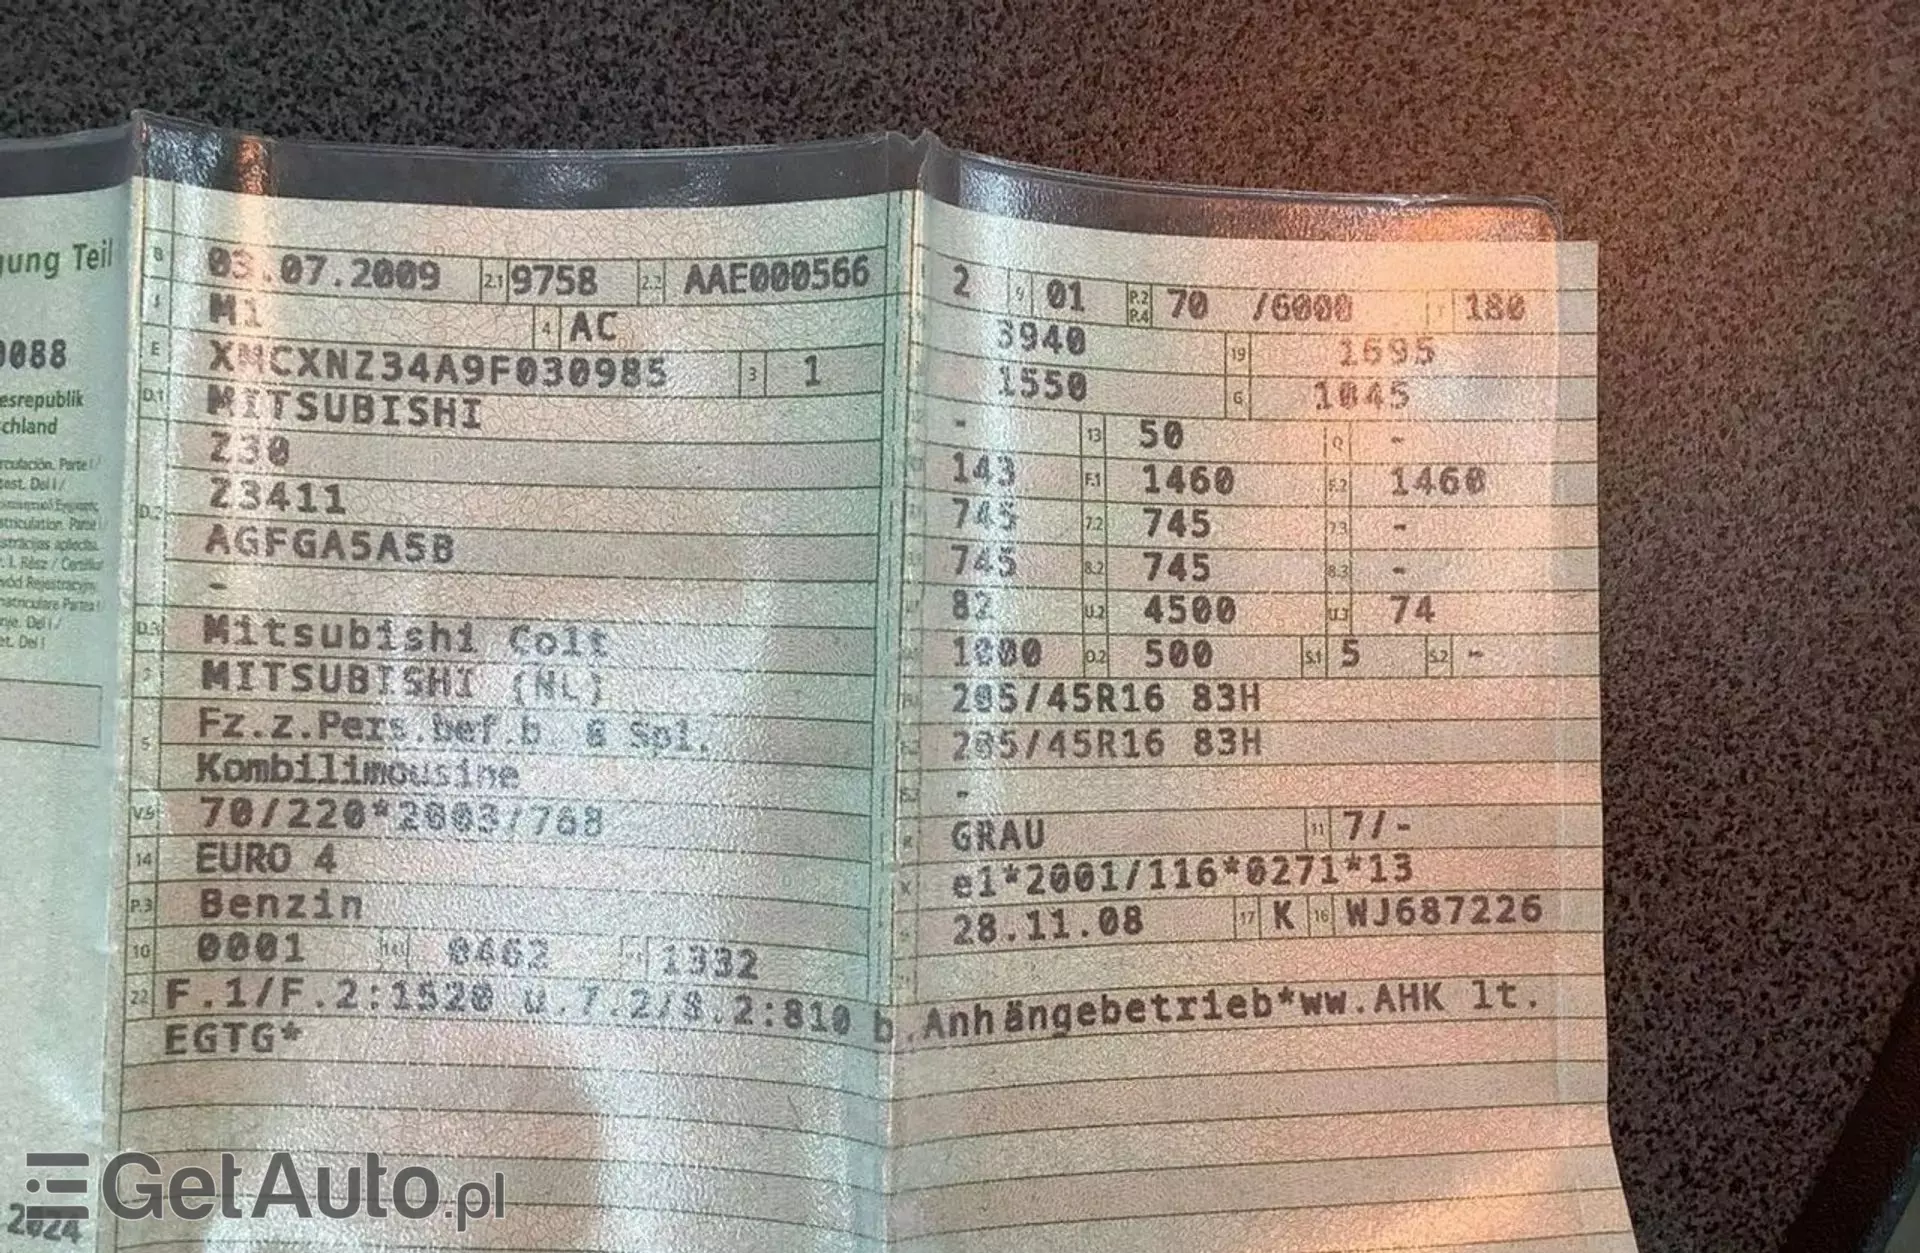 B 03.07.2009 2.1 9758 2.2 AAE000566
J M1 4 AC
E XMCXNZ34A9F030985 3 1
D.1 MITSUBISHI
Z30
D.2 Z3411
AGFGA5A5B
-
D.3 Mitsubishi Colt
2 MITSUBISHI (NL)
5 Fz.z.Pers.bef.b. 8 Spl.
Kombilimousine
V.9 70/220*2003/76B
14 EURO 4
P.3 Benzin
10 0001 14.1 0462 P.1 1332
22 F.1/F.2:1520 u.7.2/8.2:810 b.Anhängebetrieb*ww.AHK lt.
EGTG*
2 9 01 P.2 P.4 70 /6000 T 180
3940 19 1695
1550 G 1045
- 13 50 Q -
143 F.1 1460 F.2 1460
745 7.2 745 7.3 -
745 8.2 745 8.3 -
82 U.2 4500 U.3 74
1000 O.2 500 S.1 5 S.2 -
205/45R16 83H
205/45R16 83H
-
R GRAU 11 7/-
K e1*2001/116*0271*13
28.11.08 17 K 16 WJ687226
gung Teil
0088
esrepublik
chland
2024
GetAuto.pl